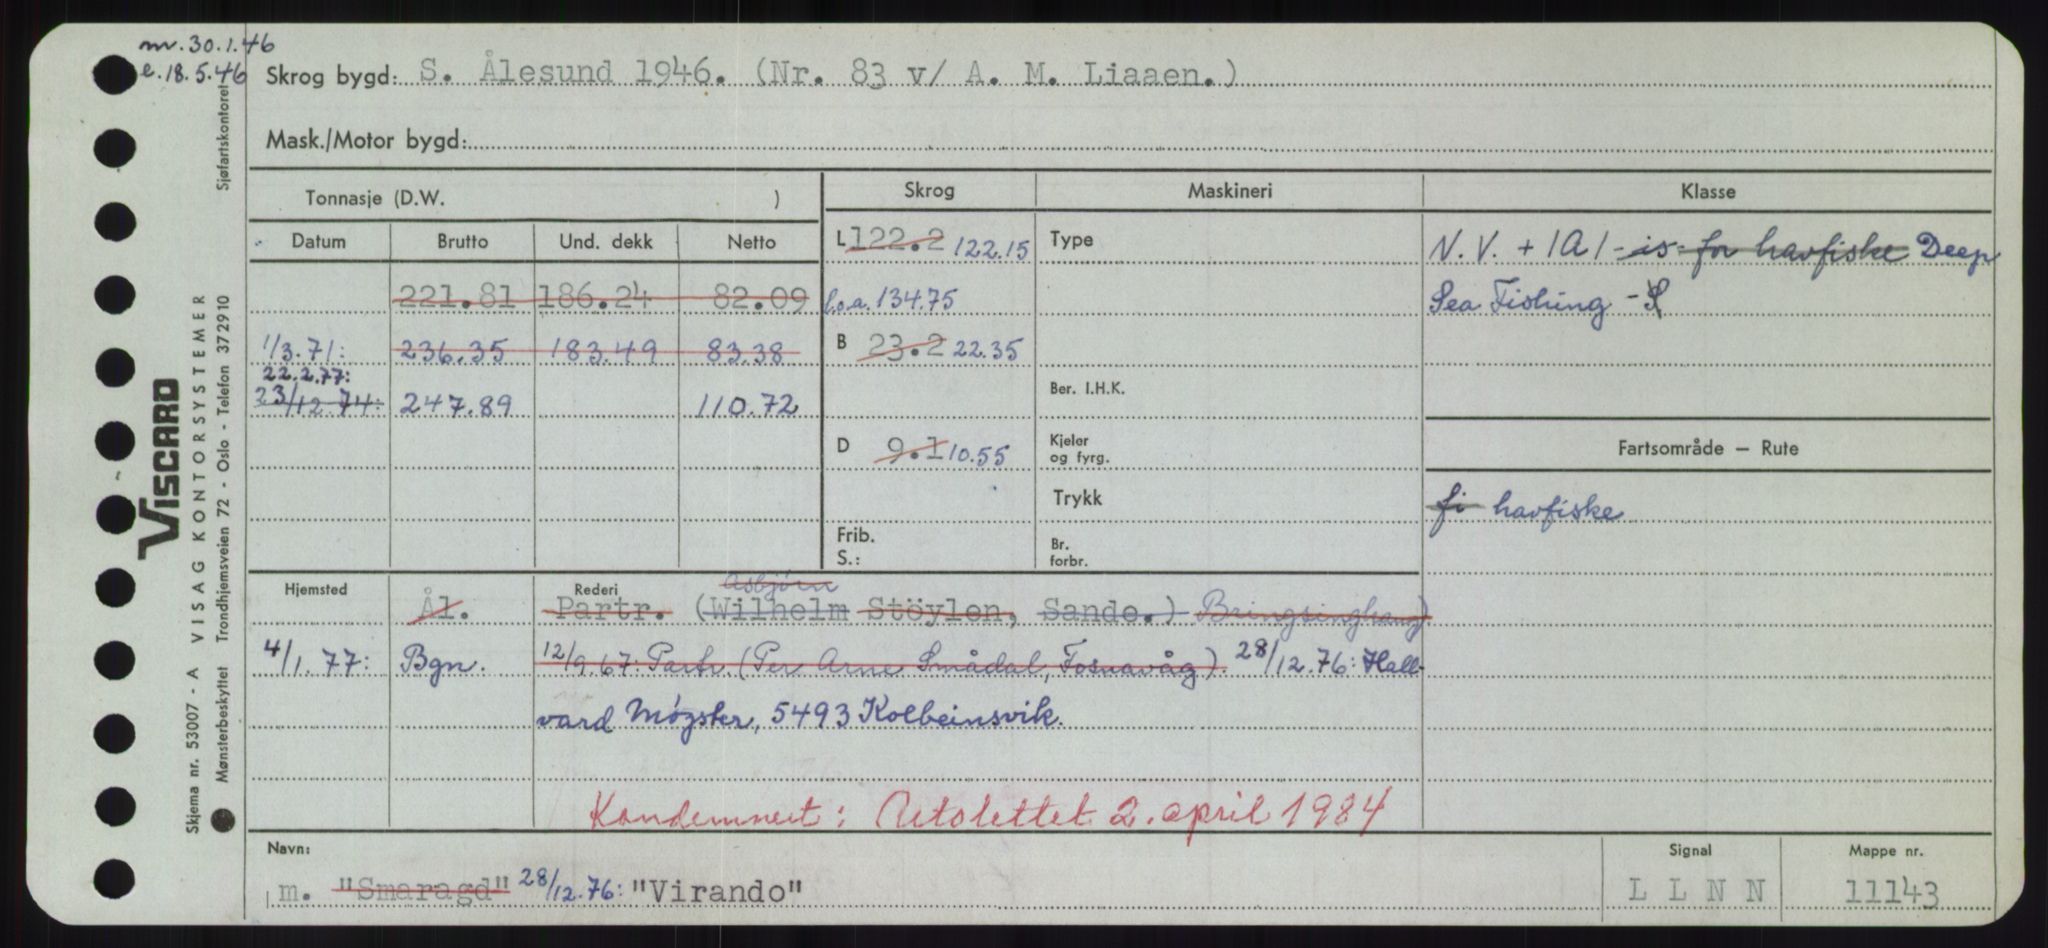 nv. 30.1.46
e. 18.5.46
Skrog bygd: S. Ålesund 1946. (Nr. 83 v/ A. M. Liaaen.)
Mask./Motor bygd:
Tonnasje (D.W. )
Skrog
Maskineri
Klasse
Datum Brutto Und. dekk Netto
L 122.2 122.15
Type
N.V. + 1A1 - is - for havfiske Deep
221.81 186.24 82.09
l.o.a. 134.75
Sea Fishing - S
1/3.71: 236.35 183.49 83.38
B 23.2 22.35
22.2.77:
23/12.74: 247.89 110.72
Ber. I.H.K.
D 9.1 10.55
Kjeler
og fyrg.
Fartsområde – Rute
Trykk
fi havfiske
Frib.
S.:
Br.
forbr.
Hjemsted
Rederi
Asbjørn
Ål. Partr. (Wilhelm Stöylen, Sande.) Bringsinghaug)
4/1.77: Bgn. 12/9.67: Partr. (Per Arne Smådal, Fosnavåg). 28/12.76: Hall-
vard Møgster, 5493 Kolbeinsvik.
Kondemnert: Utslettet 2. april 1984
Navn:
Signal
Mappe nr.
m. "Smaragd" 28/12.76: "Virando"
L L N N
11143
VISCARD
Skjema nr. 53007 - A VISAG KONTORSYSTEMER
Mønsterbeskyttet Trondhjemsveien 72 - Oslo - Telefon 37 29 10 Sjøfartskontoret